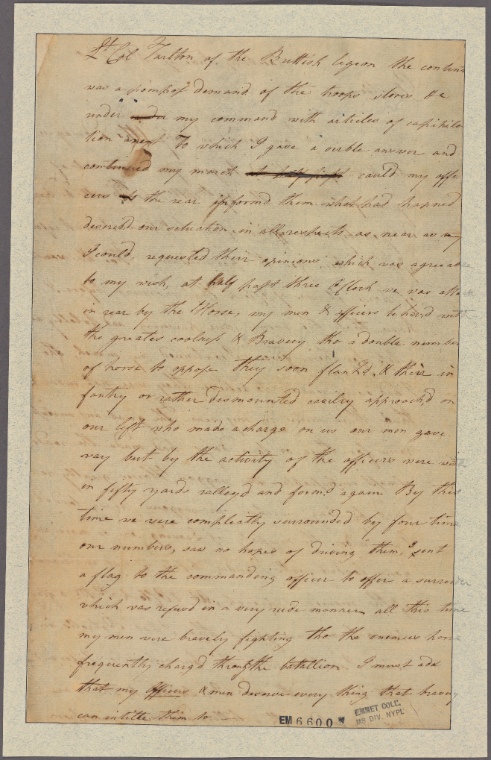 Lt Col Tarlton of the Buttish legeon the conten
was a pompos demand of the troops stores &c
under my command with articles of capitula
tion anext to which I gave a verble answer and
continued my march could my offi
cers the rear informd them what had hapned
decribd our situation in all respects as near as
I could requested their opinions which was agreeable
to my wish, at half past three oClock we was attackt
in rear by the Horse, my men & officers behavd with
the greates coolness & Bravery tho a double number
of horse to oppose they soon flankd & their in
fantry or rather dismounted cavelry approachd on
our left who made a charge on us our men gave
way but by the activity of the officers were with
in fifty yards rallayd and formd again By this
time we were compleatly surrounded by four time
our numbers, saw no hopes of driving them I sent
a flag to the commanding officer to offer a surrender
which was refusd in a very rude manner all this time
my men were bravely fighting tho the enemies horse
frequently chargd through the battallion I must add
that my officers & men deserve every thing that bravery
can entitle them to
EM 6600
EMMET COLL.
MS DIV. NYPL